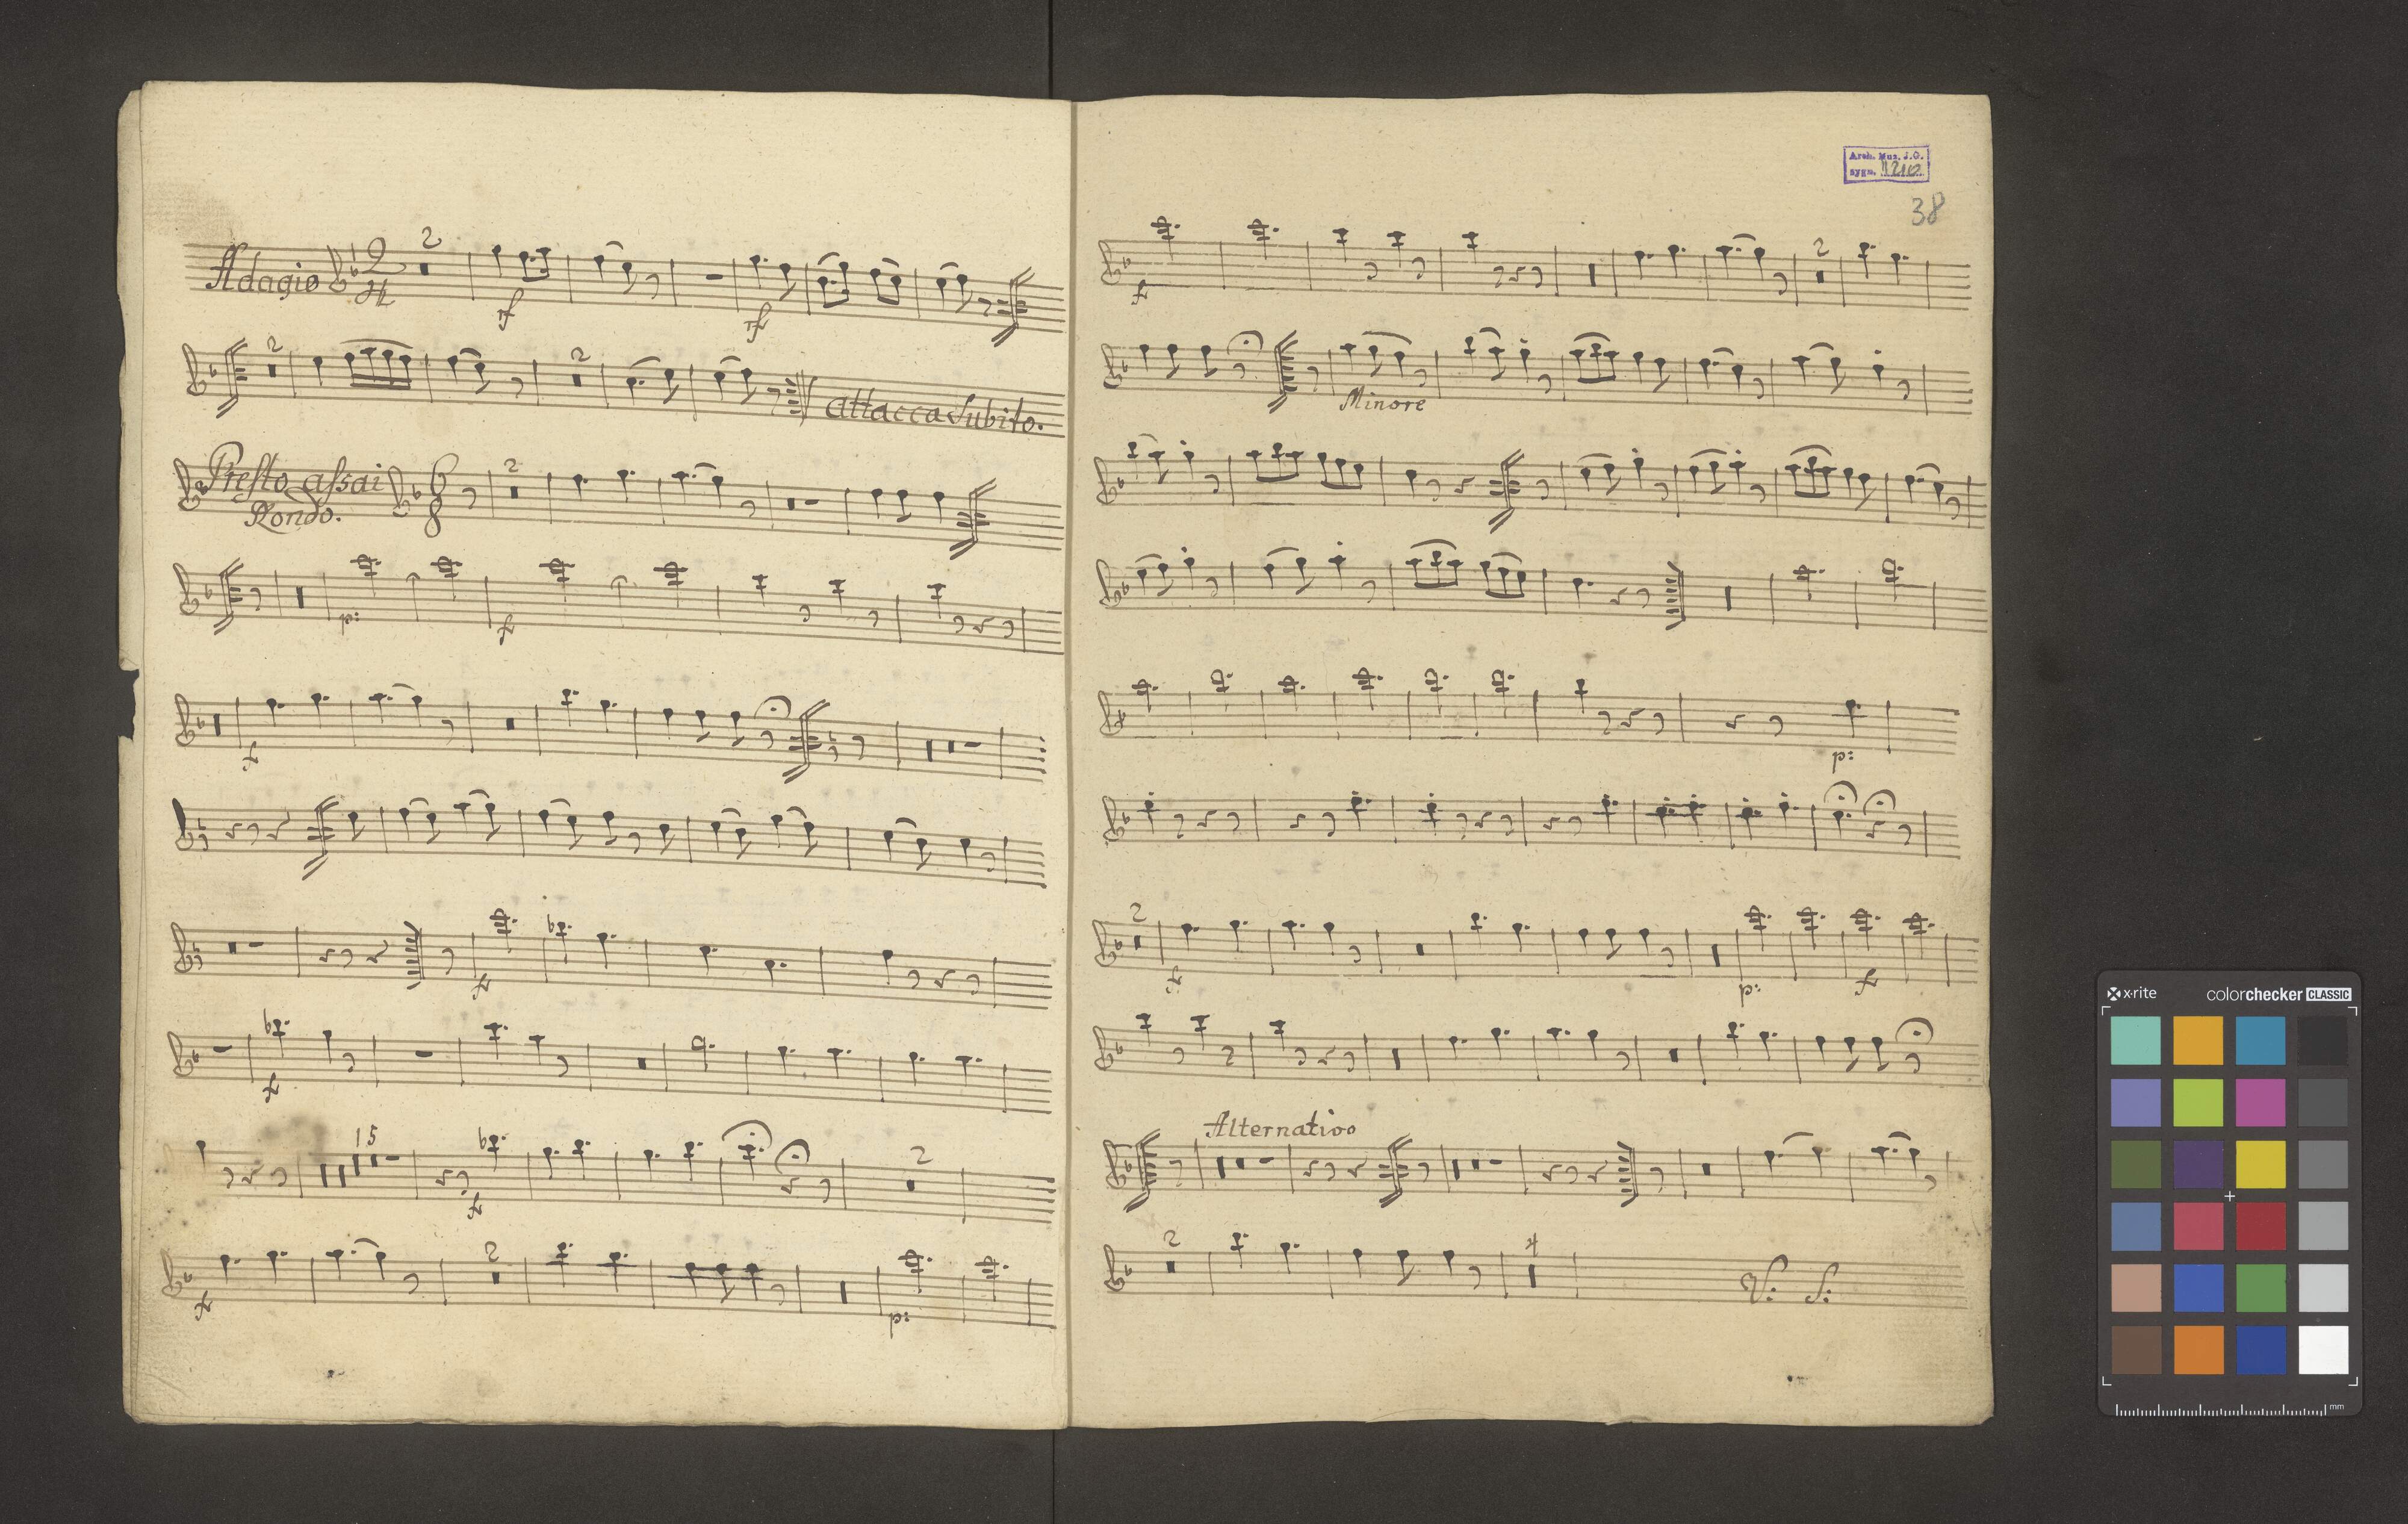 Adagio 2/4 2
rf rf
2 2 attacca Subito.
Presto assai 6/8 2
Rondo.
p: f
f
f
f
15 2
f
2
f p:
Arch. Mus. J.G.
sygn.
38
2
f
Minore
p:
2
f p: f
Alternativo
2 4 V: S:
x-rite colorchecker CLASSIC
mm